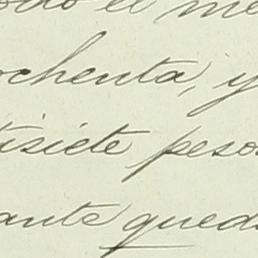 odo el me
ochenta, y
tisiete peso
ante qued